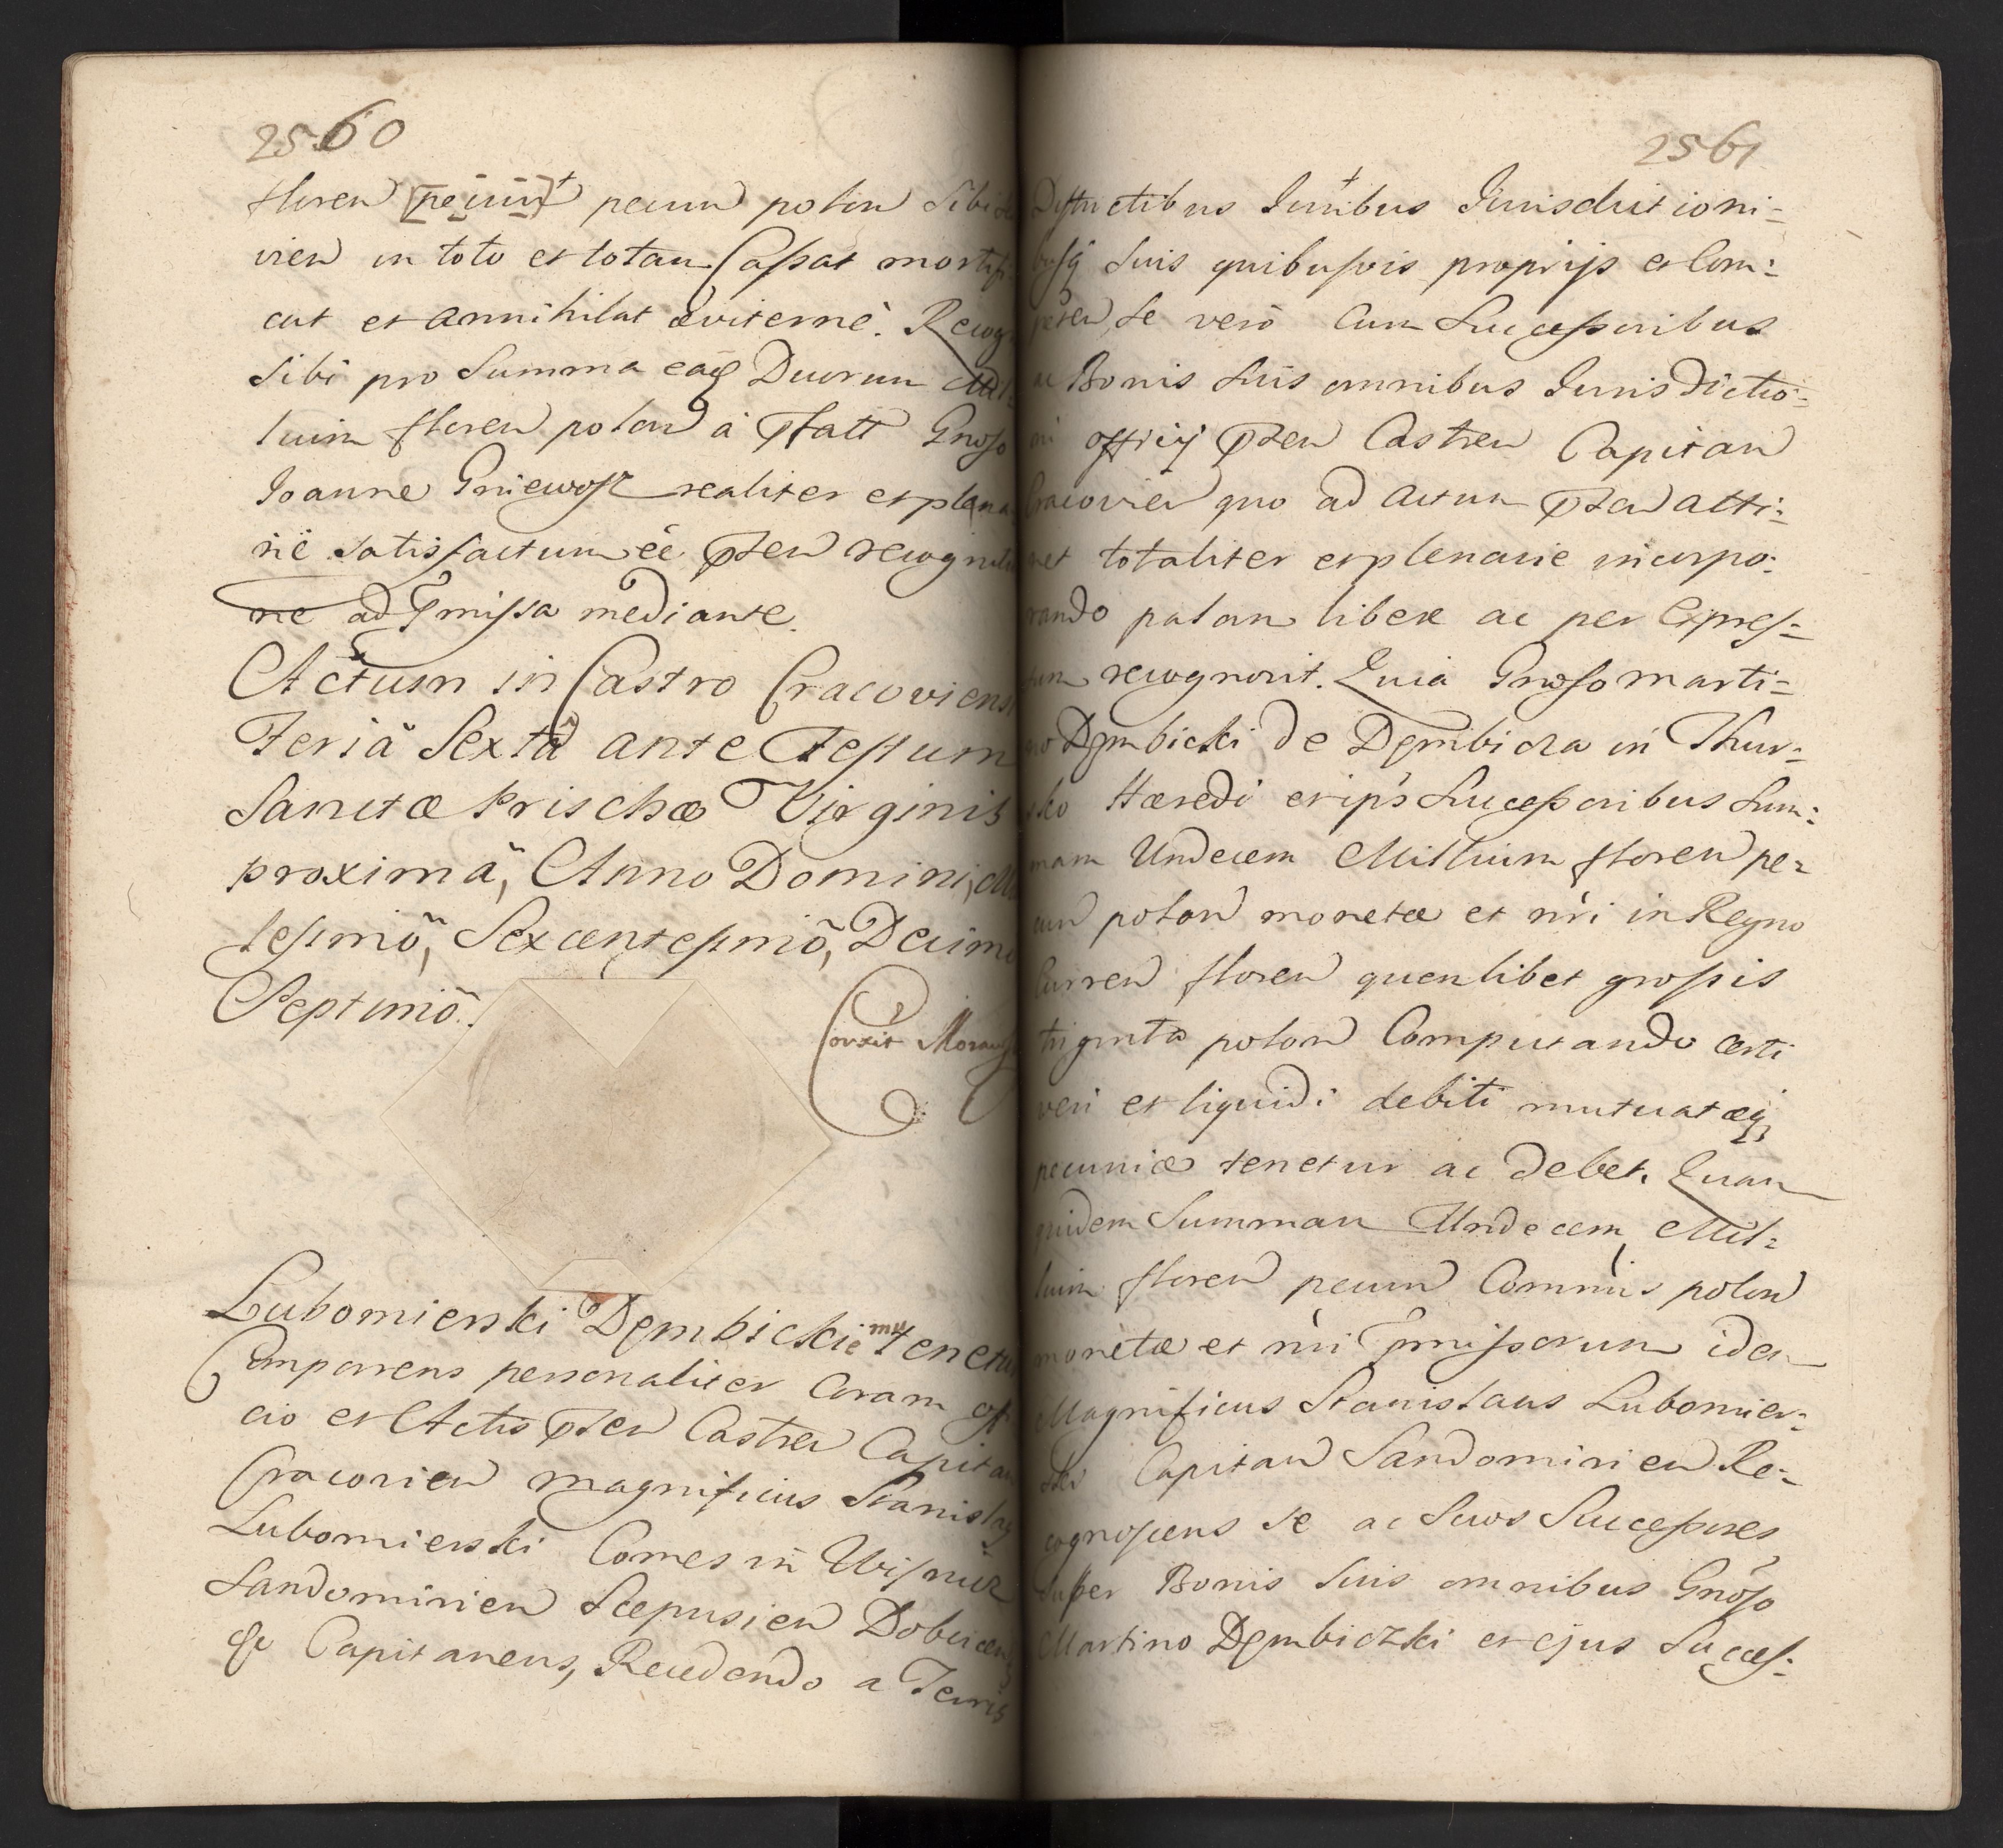 2560
floren [pecun]+ pecun polon sibi
vien in toto et totam Cassat mortifi
cat et annihilat æviternè. Recog
sibi pro Summa eaq Duorum Mil=
lium floren polon à Pfatt Gnoso
Joanne Gniewosz realiter et plena
riè satisfactum éé Pñten recognitio
ne ad Pmissa mediante.
Actum in Castro Cracoviens
Feriâ Sextâ ante Festum
Sanctæ Prischæ Virginis
proximâ, Anno Domini, Mil
lesimô, Sexcentesimô, Decimo
Septimô.
Corrxit Moraws
Lubomierski Dembickiemu tenetur
Comparens personaliter Coram offi
cio et Actis Pñten Castren Capitan
Cracovien magnificus Stanislaq
Lubomierski Comes in Wisnicz
Sandomirien Scepusien Dobczen
&c Capitaneus, Recedendo a Terris
2561
Districtibus Juribus Jurisdictioni=
busq suis quibusvis propriis et Com=
peten, se verò Cum Successoribus
ac Bonis suis omnibus Jurisdictio=
ni officij Pñten Castren Capitan
Cracovien quo ad actum Pñten atti=
net totaliter et plenarie incorpo=
rando palam libere ac per Expres=
sum recognovit. Quia Gnoso Marti=
no Dembicki de Dembicza in Thur=
sko Hæredi et ips Successoribus Sum=
mam Undecem Millium floren pe=
cun polon monetæ et nri in Regno
Curren floren quenlibet grossis
triginta polon Computando certi
veri et liquidi debiti mutuatæq
pecuniæ tenetur ac debet. Quam
quidem Summam Undecem Mil=
lium floren pecun Commis polon
monetæ et nri Pmissorum idem
Magnificus Stanislaus Lubomier=
ski Capitan Sandomirien Re=
cognoscens se ac suos Successores
super Bonis suis omnibus Gnoso
Martino Dembiczki et ejus Succes=